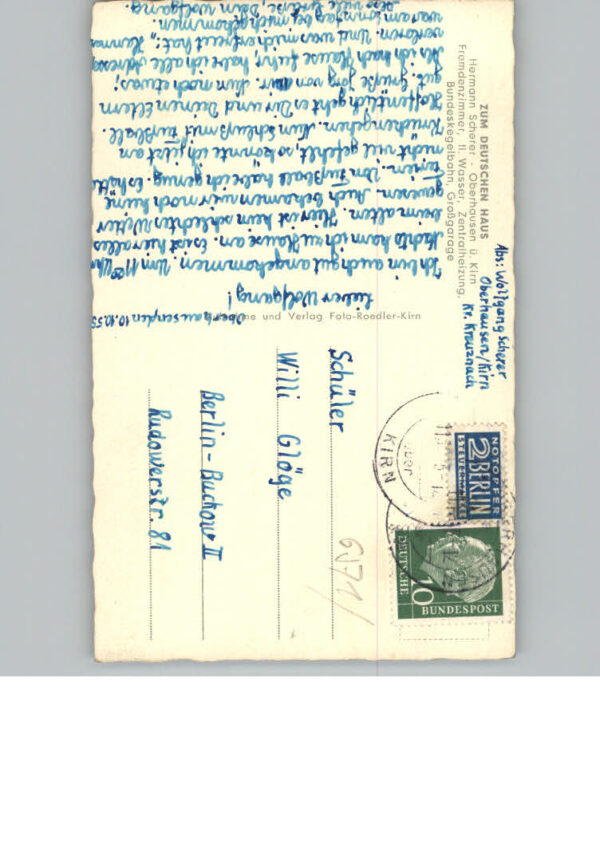 ZUM DEUTSCHEN HAUS
Hermann Scherer - Oberhausen ü. Kirn
Fremdenzimmer, fl. Wasser, Zentralheizung,
Bundeskegelbahn, Großgarage
Abs: Wolfgang Scherer
Oberhausen/Kirn
Kr. Kreuznach
Oberhausen, den 10.10.55
Lieber Wolfgang!
Ich bin auch gut angekommen. Um 11.00 Uhr
Nachts kam ich zu Hause an. Es ist hier alles
beim alten. Hier ist kein schlechter Wetter
gewesen. Auch bekommen wir noch keine
Ferien. Von Fußball habe ich genug. Es hätte
nicht viel gefehlt, so könnte ich jetzt an
Krücken gehen. Nun Schluß mit Fußball.
Hoffentlich geht es Dir und Deinen Eltern
gut. Grüße Jörg von mir. Nun noch etwas;
Als ich nach Hause fuhr, habe ich alle Adressen
verloren. Und was mich erfreut hat: Hermann
war am Sonntag bei mich gekommen.
viele Grüße, Dein Wolfgang.
und Verlag Foto-Roedler-Kirn
Schüler
Willi Glöge
Berlin-Buckow II
Rudowerstr. 81
6571/
KIRN
NOTOPFER
2 BERLIN
STEUERMARKE
DEUTSCHE
10
BUNDESPOST